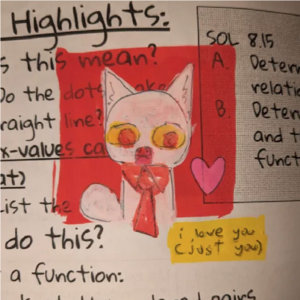 Highlights:
s this mean?
Do the dots
raight line?
x-values ca
at)
ist the
do this?
a function:
SOL 8.15
A. Deter
relatio
B. Deter
and t
funct
i love you
(just you)